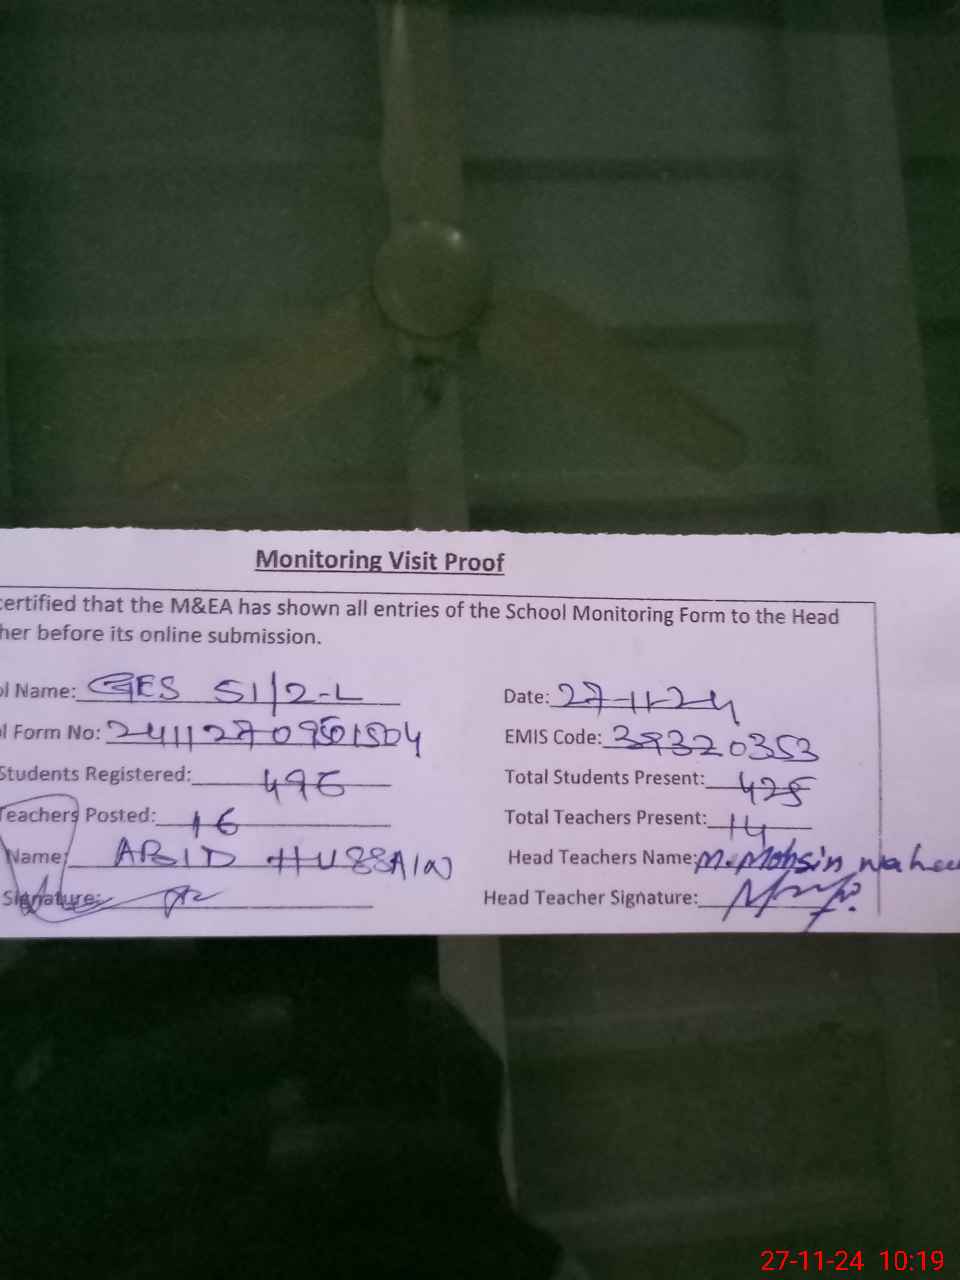 Monitoring Visit Proof
certified that the M&EA has shown all entries of the School Monitoring Form to the Head
her before its online submission.
ol Name: GES 51/2-L Date: 27-11-24
l Form No: EMIS Code: 39320353
Students Registered: 496 Total Students Present: 428
Teachers Posted: 16 Total Teachers Present: 14
Name: ABID HUSSAIN Head Teachers Name: M. Mohsin
Signature: Head Teacher Signature:
27-11-24 10:19